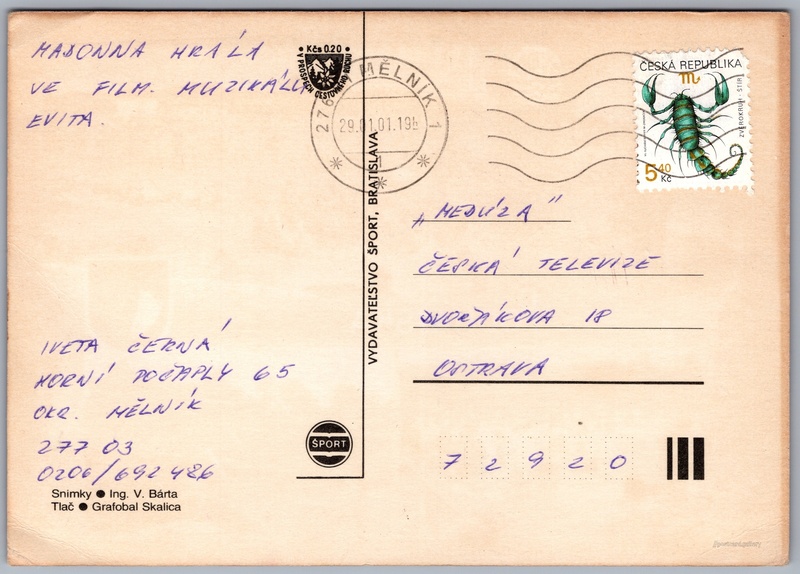 MADONNA HRÁLA
VE FILM. MUZIKÁLU
EVITA.
Kčs 0.20
V PROSPECH CESTOVNÉHO RUCHU
276 MĚLNÍK 1
29.01.01.19
1
ČESKÁ REPUBLIKA
ZVĚROKRUH - ŠTÍR
5,40
Kč
VYDAVATEĽSTVO ŠPORT, BRATISLAVA
„MEDÚZA“
ČESKÁ TELEVIZE
DVOŘÁKOVA 18
OSTRAVA
72920
IVETA ČERNÁ
HORNÍ POČAPLY 65
OKR. MĚLNÍK
277 03
0206/692 426
ŠPORT
Snímky ● Ing. V. Bárta
Tlač ● Grafobal Skalica